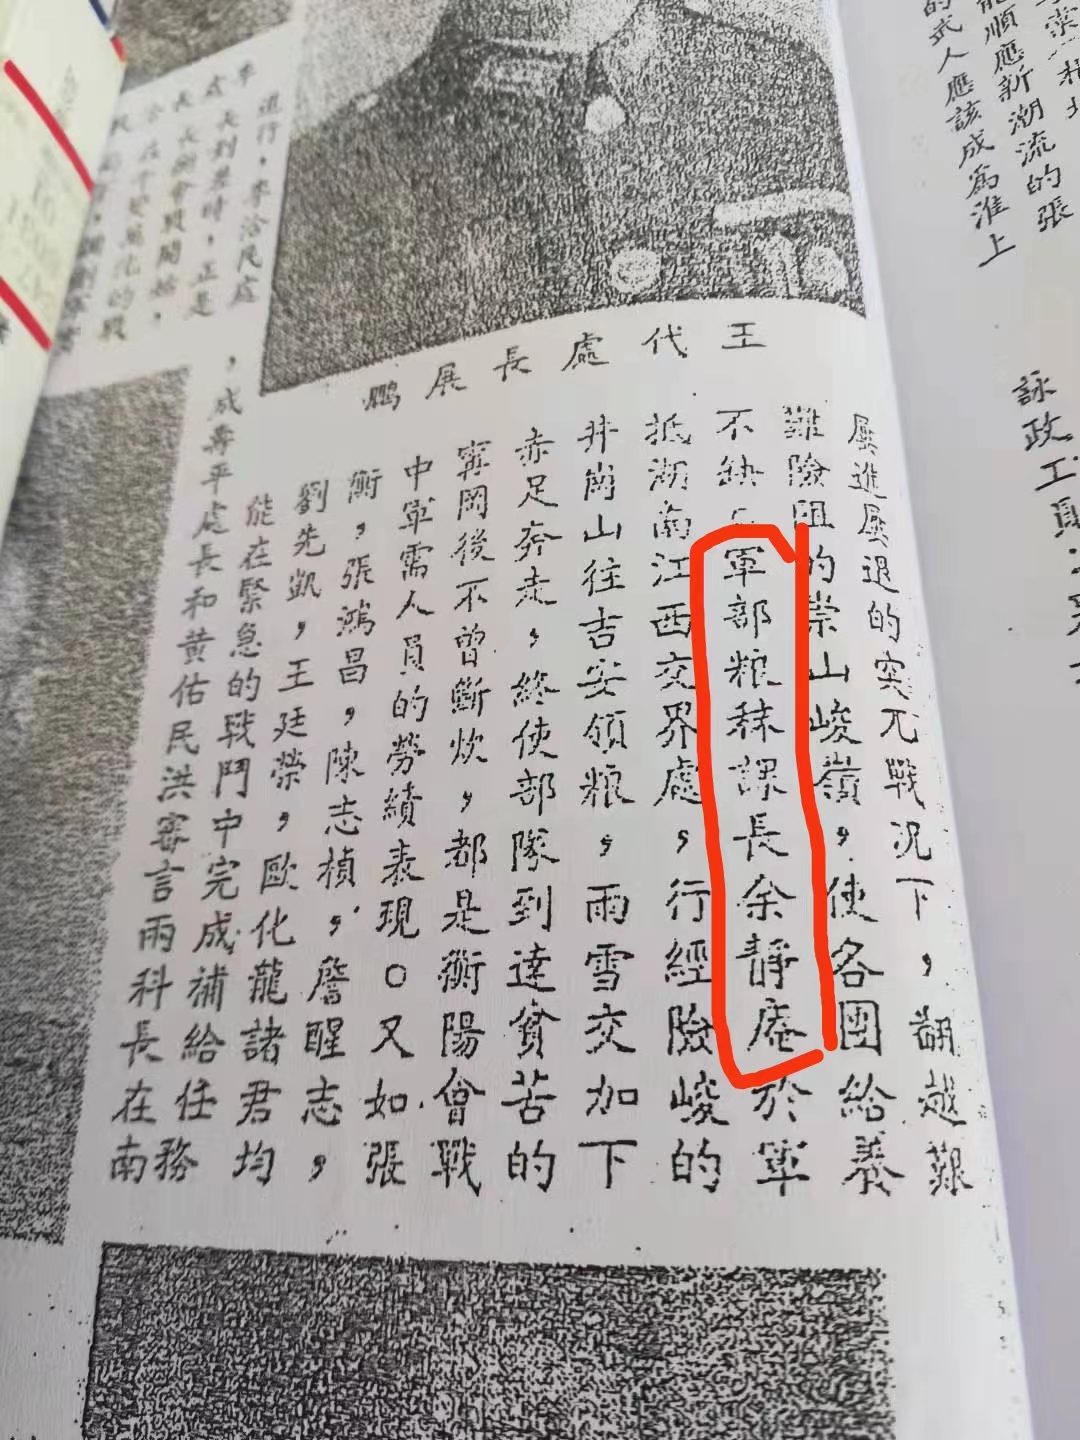 順應新潮流的張
的武人應該成爲淮上
詠政工
王代處長展鵬
屢進屢退的突兀戰況下，翻越艱
難險阻的崇山峻嶺，使各團給養
不缺。軍部粮秣課長余靜庵於軍
抵湖南江西交界處，行經險峻的
井崗山往吉安領粮，雨雪交加下
赤足奔走，終使部隊到達貧苦的
甯岡後不曾斷炊，都是衡陽會戰
中軍需人員的勞績表現。又如張
衡，張鴻昌，陳志楨，詹醒志，
劉先凱，王廷榮，歐化龍諸君均
能在緊急的戰鬥中完成補給任務
，成壽平處長和黃佑民洪審言兩科長在南
進行，李洽民處
長到差時，正是
長衡會戰開始，
在千變萬化的戰